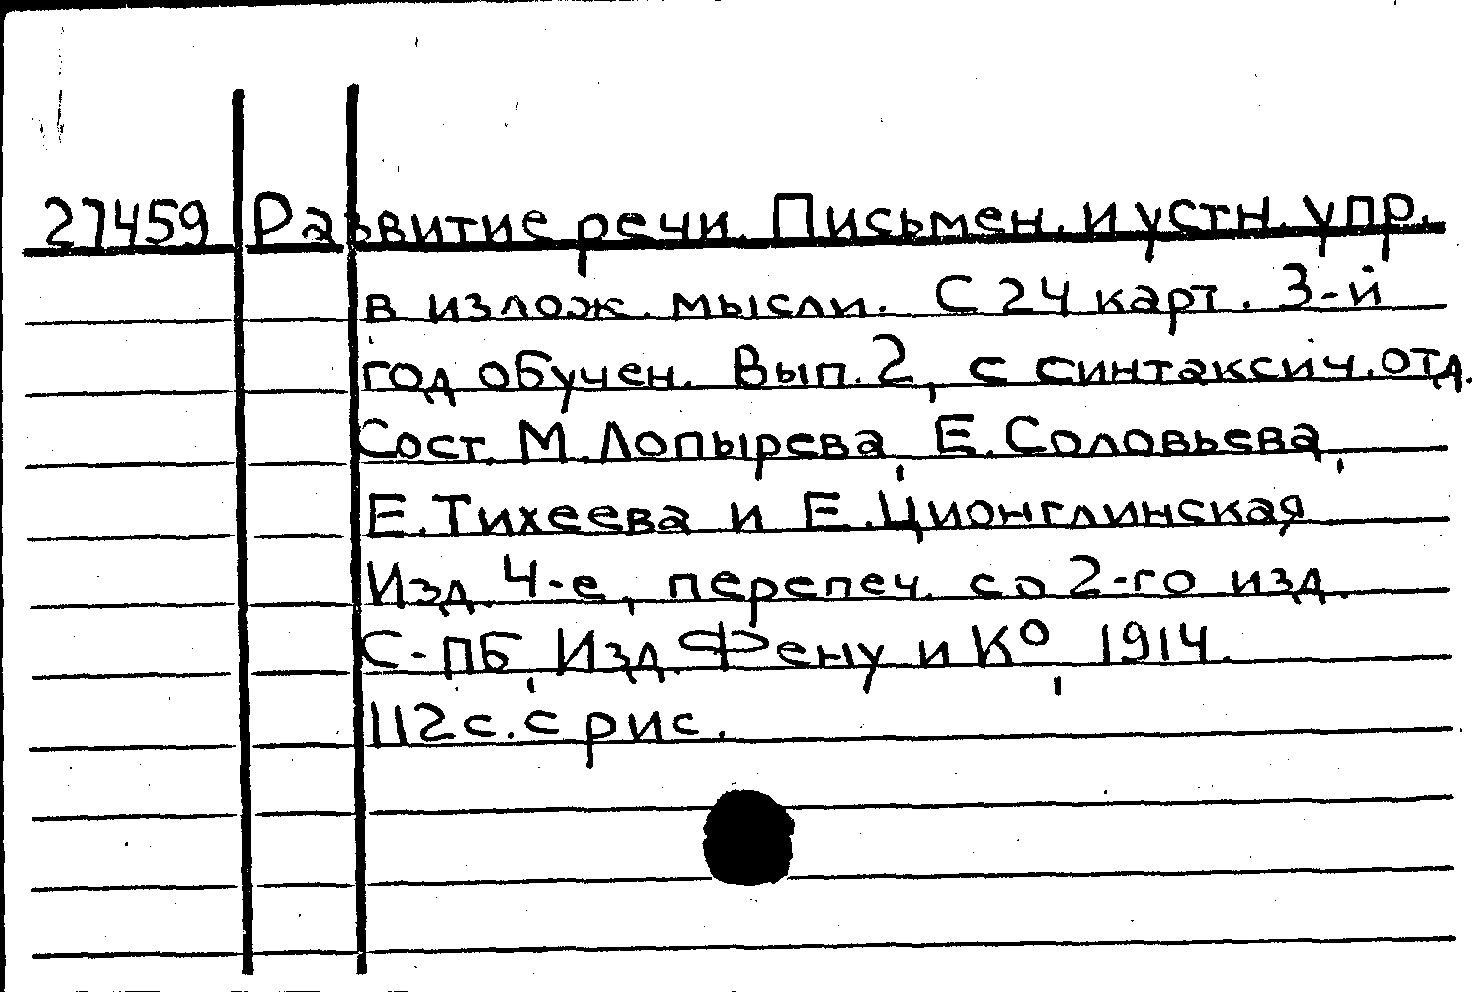 27459 Развитие речи. Письмен. и устн. упр.
в излож. мысли. С 24 карт. 3-й
год обучен. Вып. 2, с синтаксич. отд.
Сост. М. Лопырева, Е. Соловьева,
Е. Тихеева и Е. Ционглинская
Изд. 4-е, перепеч. со 2-го изд.
С-ПБ, Изд. Фену и К⁰, 1914.
112 с. с рис.